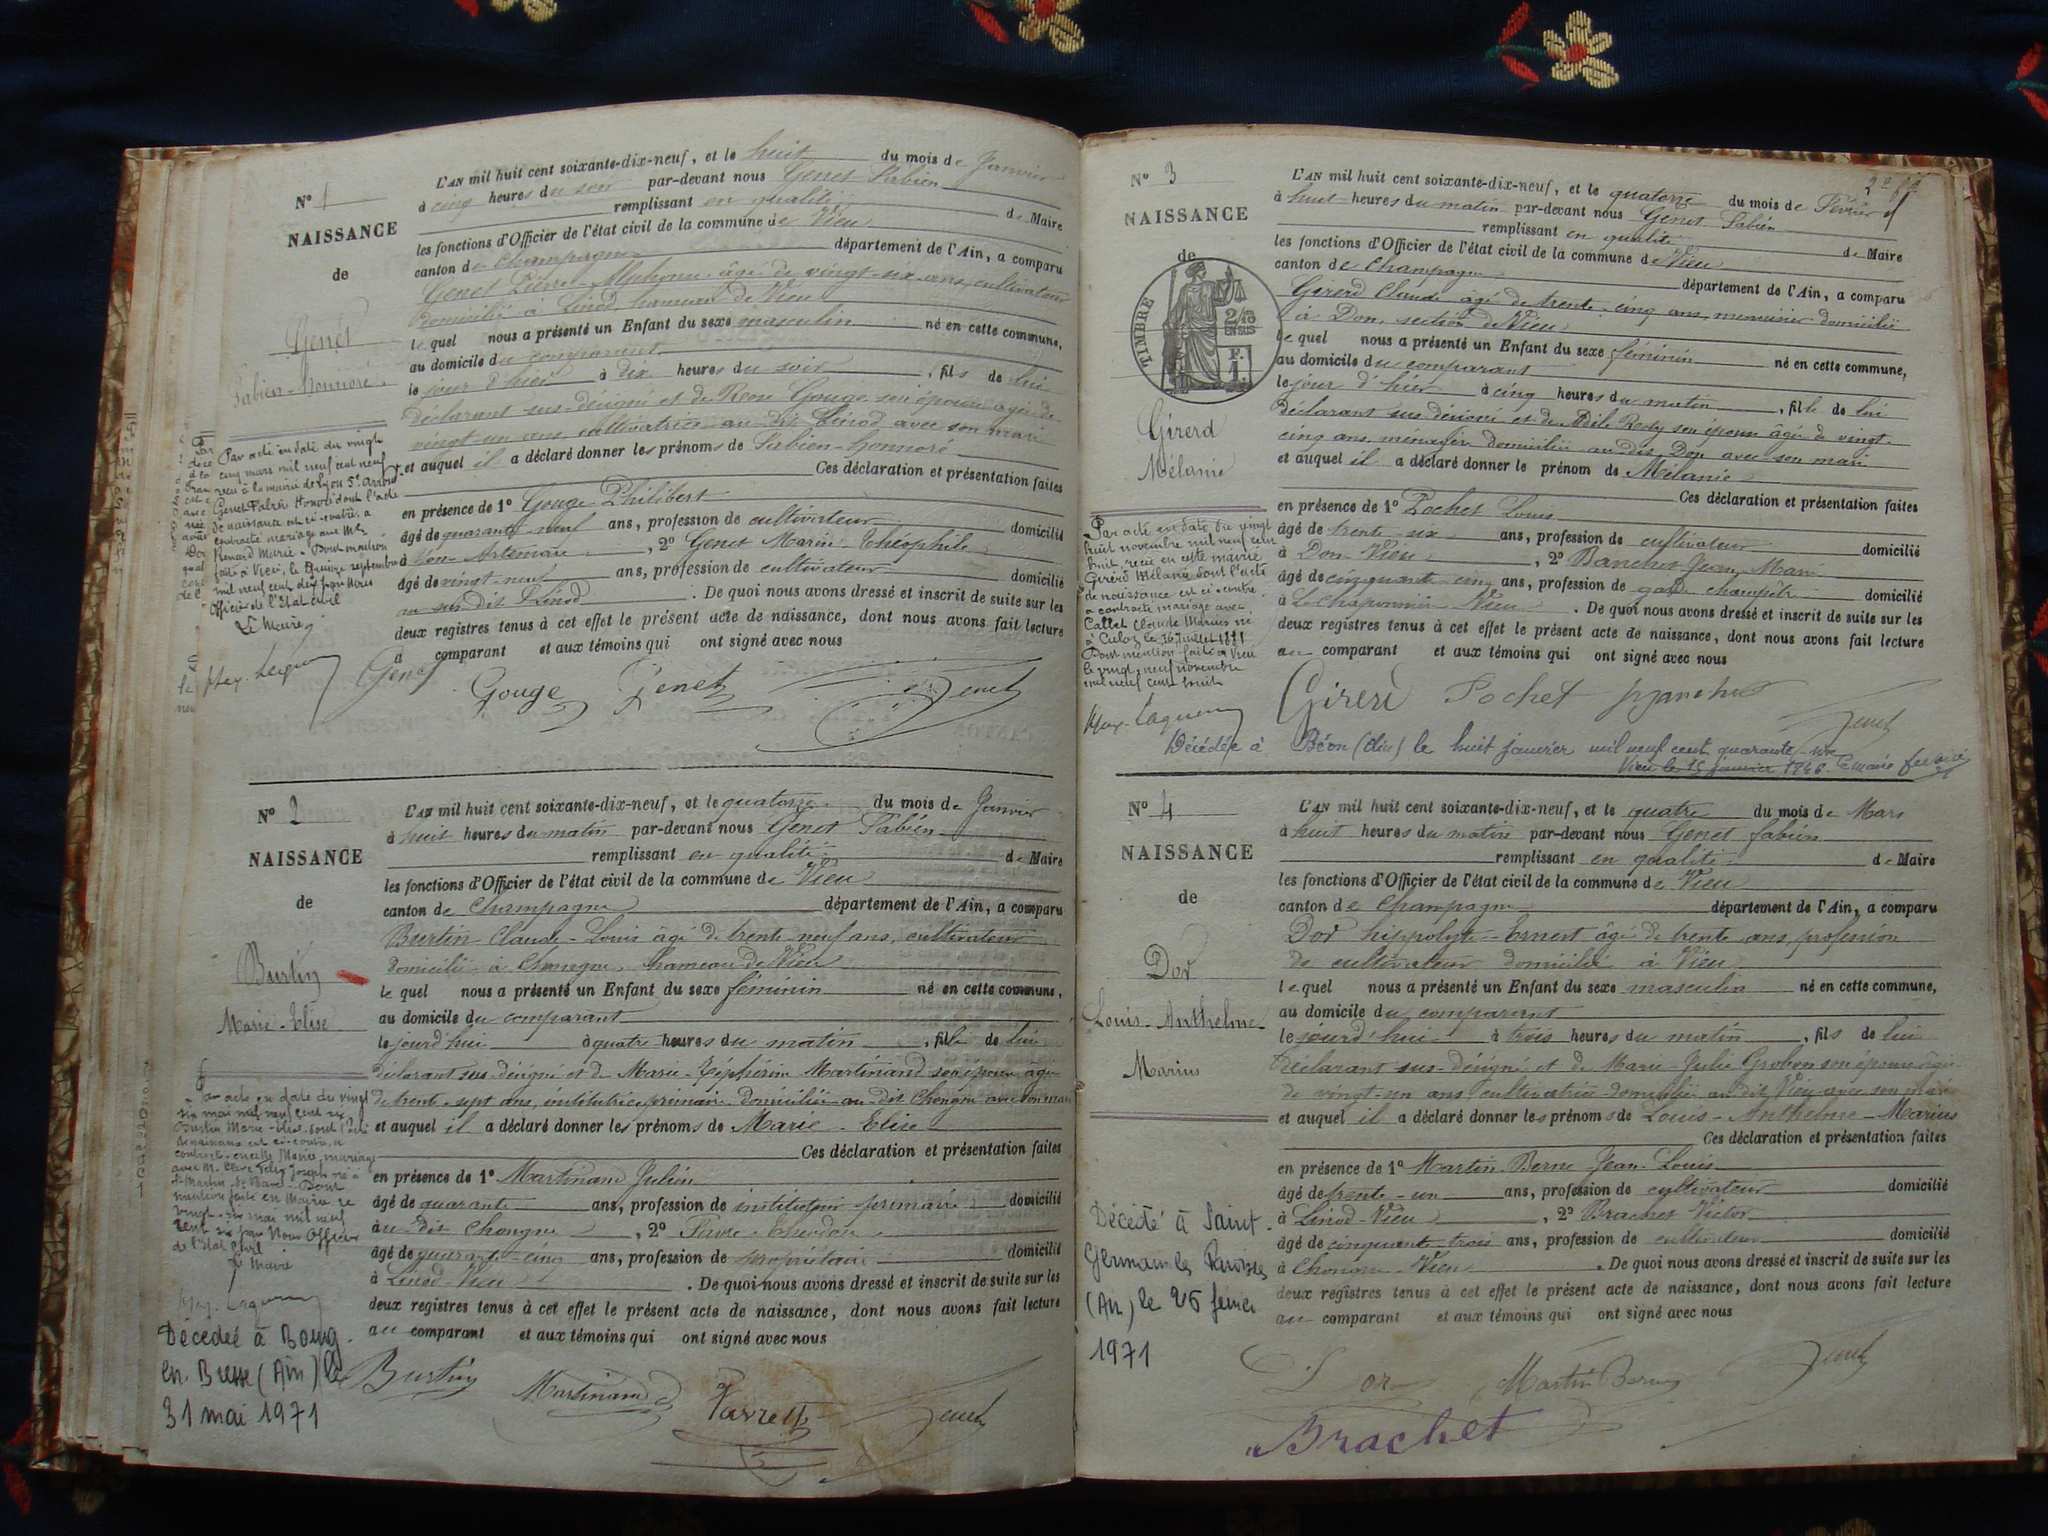 N° 1
NAISSANCE
de
Genet
Fabien-Honnoré
L'AN mil huit cent soixante-dix-neuf, et le huit du mois de Janvier
à cinq heures du soir par-devant nous Genet Fabien
remplissant en qualité de Maire
les fonctions d'Officier de l'état civil de la commune de Vieu
canton de Champagne département de l'Ain, a comparu
Genet Pierre-Alphonse âgé de vingt-six ans, cultivateur
domicilié à Linod hameau de Vieu
le quel nous a présenté un Enfant du sexe masculin né en cette commune,
au domicile du comparant
le jour d'hier à dix heures du soir, fils de lui
déclarant sus-désigné et de Gouge son épouse âgée de
vingt un ans, cultivatrice au dit Linod avec son mari
et auquel il a déclaré donner les prénoms de Fabien-Honnoré
Ces déclaration et présentation faites
en présence de 1° Gouge Philibert
âgé de quarante-neuf ans, profession de cultivateur domicilié
à Artemare, 2° Genet Marin-Théophile
âgé de vingt-neuf ans, profession de cultivateur domicilié
au sus dit Linod. De quoi nous avons dressé et inscrit de suite sur les
deux registres tenus à cet effet le présent acte de naissance, dont nous avons fait lecture
a comparant et aux témoins qui ont signé avec nous
Par acte en date du vingt
cinq mars mil neuf cent neuf
reçu à la mairie de Lyon 5e Arrond.
Genet Fabien Honoré dont l'acte
de naissance est ci-contre, a
contracté mariage avec Mlle
Renard Marie - Dont mention
faite à Vieu, le septembre
mil neuf cent dix par Nous
Officier de l'Etat civil
Le Maire
Genet
Gouge Genet Genet
N° 2
NAISSANCE
de
Burtin
Marie-Elise
L'AN mil huit cent soixante-dix-neuf, et le quatorze du mois de Janvier
à huit heures du matin par-devant nous Genet Fabien
remplissant en qualité de Maire
les fonctions d'Officier de l'état civil de la commune de Vieu
canton de Champagne département de l'Ain, a comparu
Burtin Claude-Louis âgé de trente-neuf ans, cultivateur
domicilié à Chongne, hameau de Vieu
le quel nous a présenté un Enfant du sexe féminin né en cette commune,
au domicile du comparant
le jourd'hui à quatre heures du matin, fille de lui
déclarant sus-désigné et de Marie-Zéphirine Martinand son épouse âgée
de trente-sept ans, institutrice primaire domiciliée au dit Chongne avec son mari
et auquel il a déclaré donner les prénoms de Marie-Elise
Ces déclaration et présentation faites
en présence de 1° Martinand Julien
âgé de quarante ans, profession de instituteur primaire domicilié
au dit Chongne, 2°
âgé de quarante cinq ans, profession de propriétaire domicilié
à Linod-Vieu. De quoi nous avons dressé et inscrit de suite sur les
deux registres tenus à cet effet le présent acte de naissance, dont nous avons fait lecture
au comparant et aux témoins qui ont signé avec nous
Par acte en date du vingt
six mai mil neuf cent six
Burtin Marie-Elise dont l'acte
de naissance est ci-contre, a
contracté en cette Mairie, mariage
avec M. Felix Joseph né à
St-Martin Dont
mention faite en Mairie ce
vingt-six mai mil neuf
cent six par Nous Officier
de l'Etat civil
Le Maire
Décédée à Bourg
en Bresse (Ain) le
31 mai 1971
Burtin Martinand Genet
N° 3
NAISSANCE
de
TIMBRE
2/10
EN SUS
F.
1.
Girerd
Mélanie
L'AN mil huit cent soixante-dix-neuf, et le quatorze du mois de Février
à huit heures du matin par-devant nous Genet Fabien
remplissant en qualité de Maire
les fonctions d'Officier de l'état civil de la commune de Vieu
canton de Champagne département de l'Ain, a comparu
Girerd Claude âgé de trente-cinq ans, menuisier domicilié
à Don, section de Vieu
le quel nous a présenté un Enfant du sexe féminin né en cette commune,
au domicile du comparant
le jour d'hier à cinq heures du matin, fille de lui
déclarant sus-désigné et de son épouse âgée de vingt-
cinq ans, ménagère domiciliée au dit Don avec son mari
et auquel il a déclaré donner le prénom de Mélanie
Ces déclaration et présentation faites
en présence de 1° Pochet Louis
âgé de trente-six ans, profession de cultivateur domicilié
à Don-Vieu, 2° Jean-Marie
âgé de cinquante-cinq ans, profession de garde champêtre domicilié
à Vieu. De quoi nous avons dressé et inscrit de suite sur les
deux registres tenus à cet effet le présent acte de naissance, dont nous avons fait lecture
au comparant et aux témoins qui ont signé avec nous
Par acte en date du vingt
huit novembre mil neuf cent
huit, reçu en cette mairie
Girerd Mélanie dont l'acte
de naissance est ci-contre
a contracté mariage avec
Callet Claude Marius né
à Culoz le juillet 1881
Dont mention faite à Vieu
le vingt-neuf novembre
mil neuf cent huit
Girerd Pochet Genet
Décédée à Béon (Ain) le huit janvier mil neuf cent quarante
Vieu le 15 janvier 1946
N° 4
NAISSANCE
de
Dor
Louis-Anthelme
Marius
L'AN mil huit cent soixante-dix-neuf, et le quatre du mois de Mars
à huit heures du matin par-devant nous Genet Fabien
remplissant en qualité de Maire
les fonctions d'Officier de l'état civil de la commune de Vieu
canton de Champagne département de l'Ain, a comparu
Dor hippolyte-Ernest âgé de trente ans, profession
de cultivateur domicilié à Vieu
le quel nous a présenté un Enfant du sexe masculin né en cette commune,
au domicile du comparant
le jourd'hui à trois heures du matin, fils de lui
déclarant sus-désigné et de Marie-Julie Grobon son épouse âgée
de vingt-un ans cultivatrice domiciliée au dit Vieu avec son mari
et auquel il a déclaré donner les prénoms de Louis-Anthelme-Marius
Ces déclaration et présentation faites
en présence de 1° Martin-Berne Jean-Louis
âgé de trente-un ans, profession de cultivateur domicilié
à Linod-Vieu, 2° Brachet Victor
âgé de cinquante-trois ans, profession de cultivateur domicilié
à Chongne-Vieu. De quoi nous avons dressé et inscrit de suite sur les
deux registres tenus à cet effet le présent acte de naissance, dont nous avons fait lecture
au comparant et aux témoins qui ont signé avec nous
Décédé à Saint
Germain les Paroisses
(Ain) le 25 février
1971
Dor Martin Berne Genet
Brachet